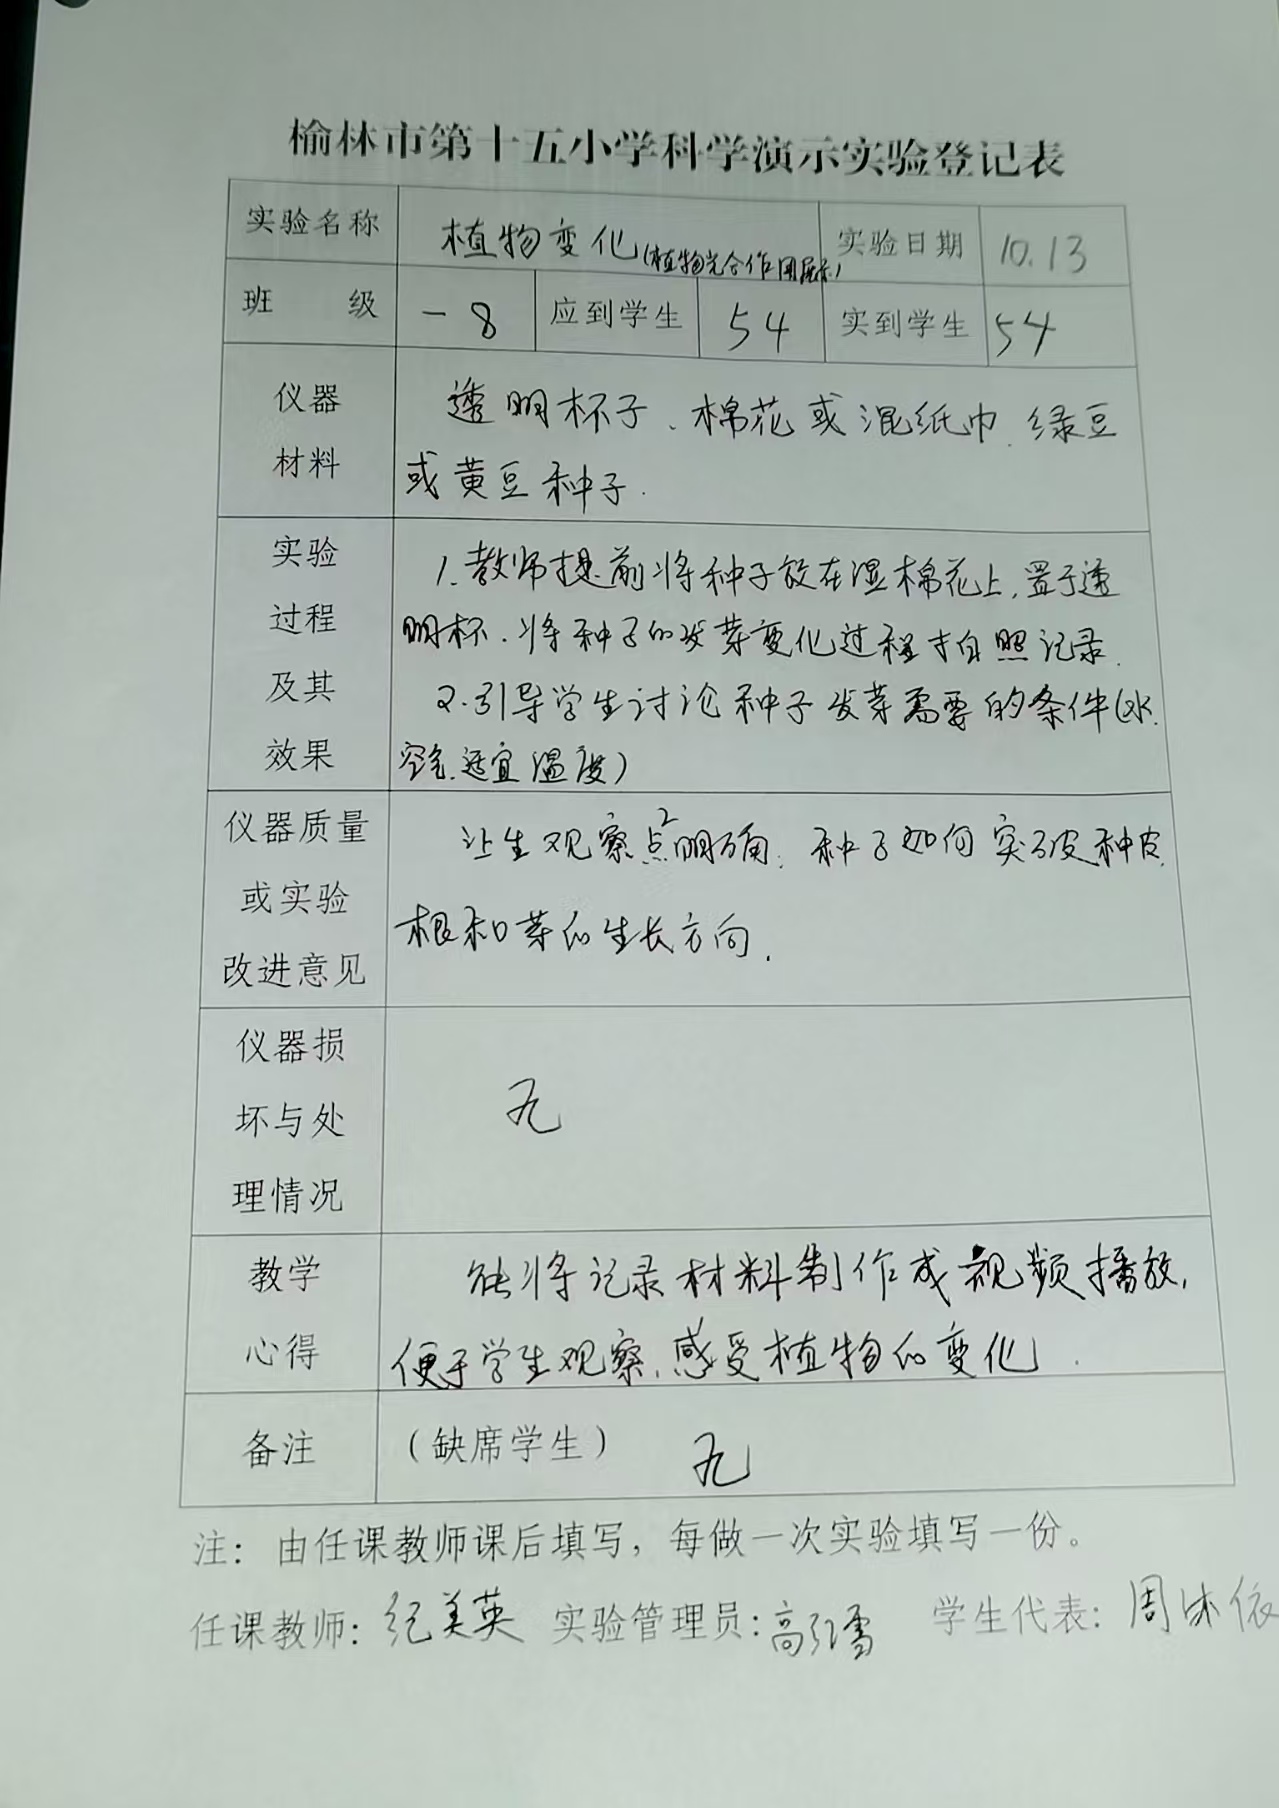 榆林市第十五小学科学演示实验登记表
实验名称 植物变化(植物光合作用展示) 实验日期 10.13
班 级 一8 应到学生 54 实到学生 54
仪器
材料
透明杯子、棉花或湿纸巾、绿豆
或黄豆种子.
实验
过程
及其
效果
1.教师提前将种子放在湿棉花上,置于透
明杯.将种子的发芽变化过程拍照记录.
2.引导学生讨论种子发芽需要的条件(水.
空气.适宜温度)
仪器质量
或实验
改进意见
让生观察点明确.种子如何突破种皮.
根和芽的生长方向.
仪器损
坏与处
理情况
无
教学
心得
能将记录材料制作成视频播放,
便于学生观察,感受植物的变化.
备注
(缺席学生) 无
注:由任课教师课后填写,每做一次实验填写一份。
任课教师:纪美英 实验管理员:高 学生代表:周 依